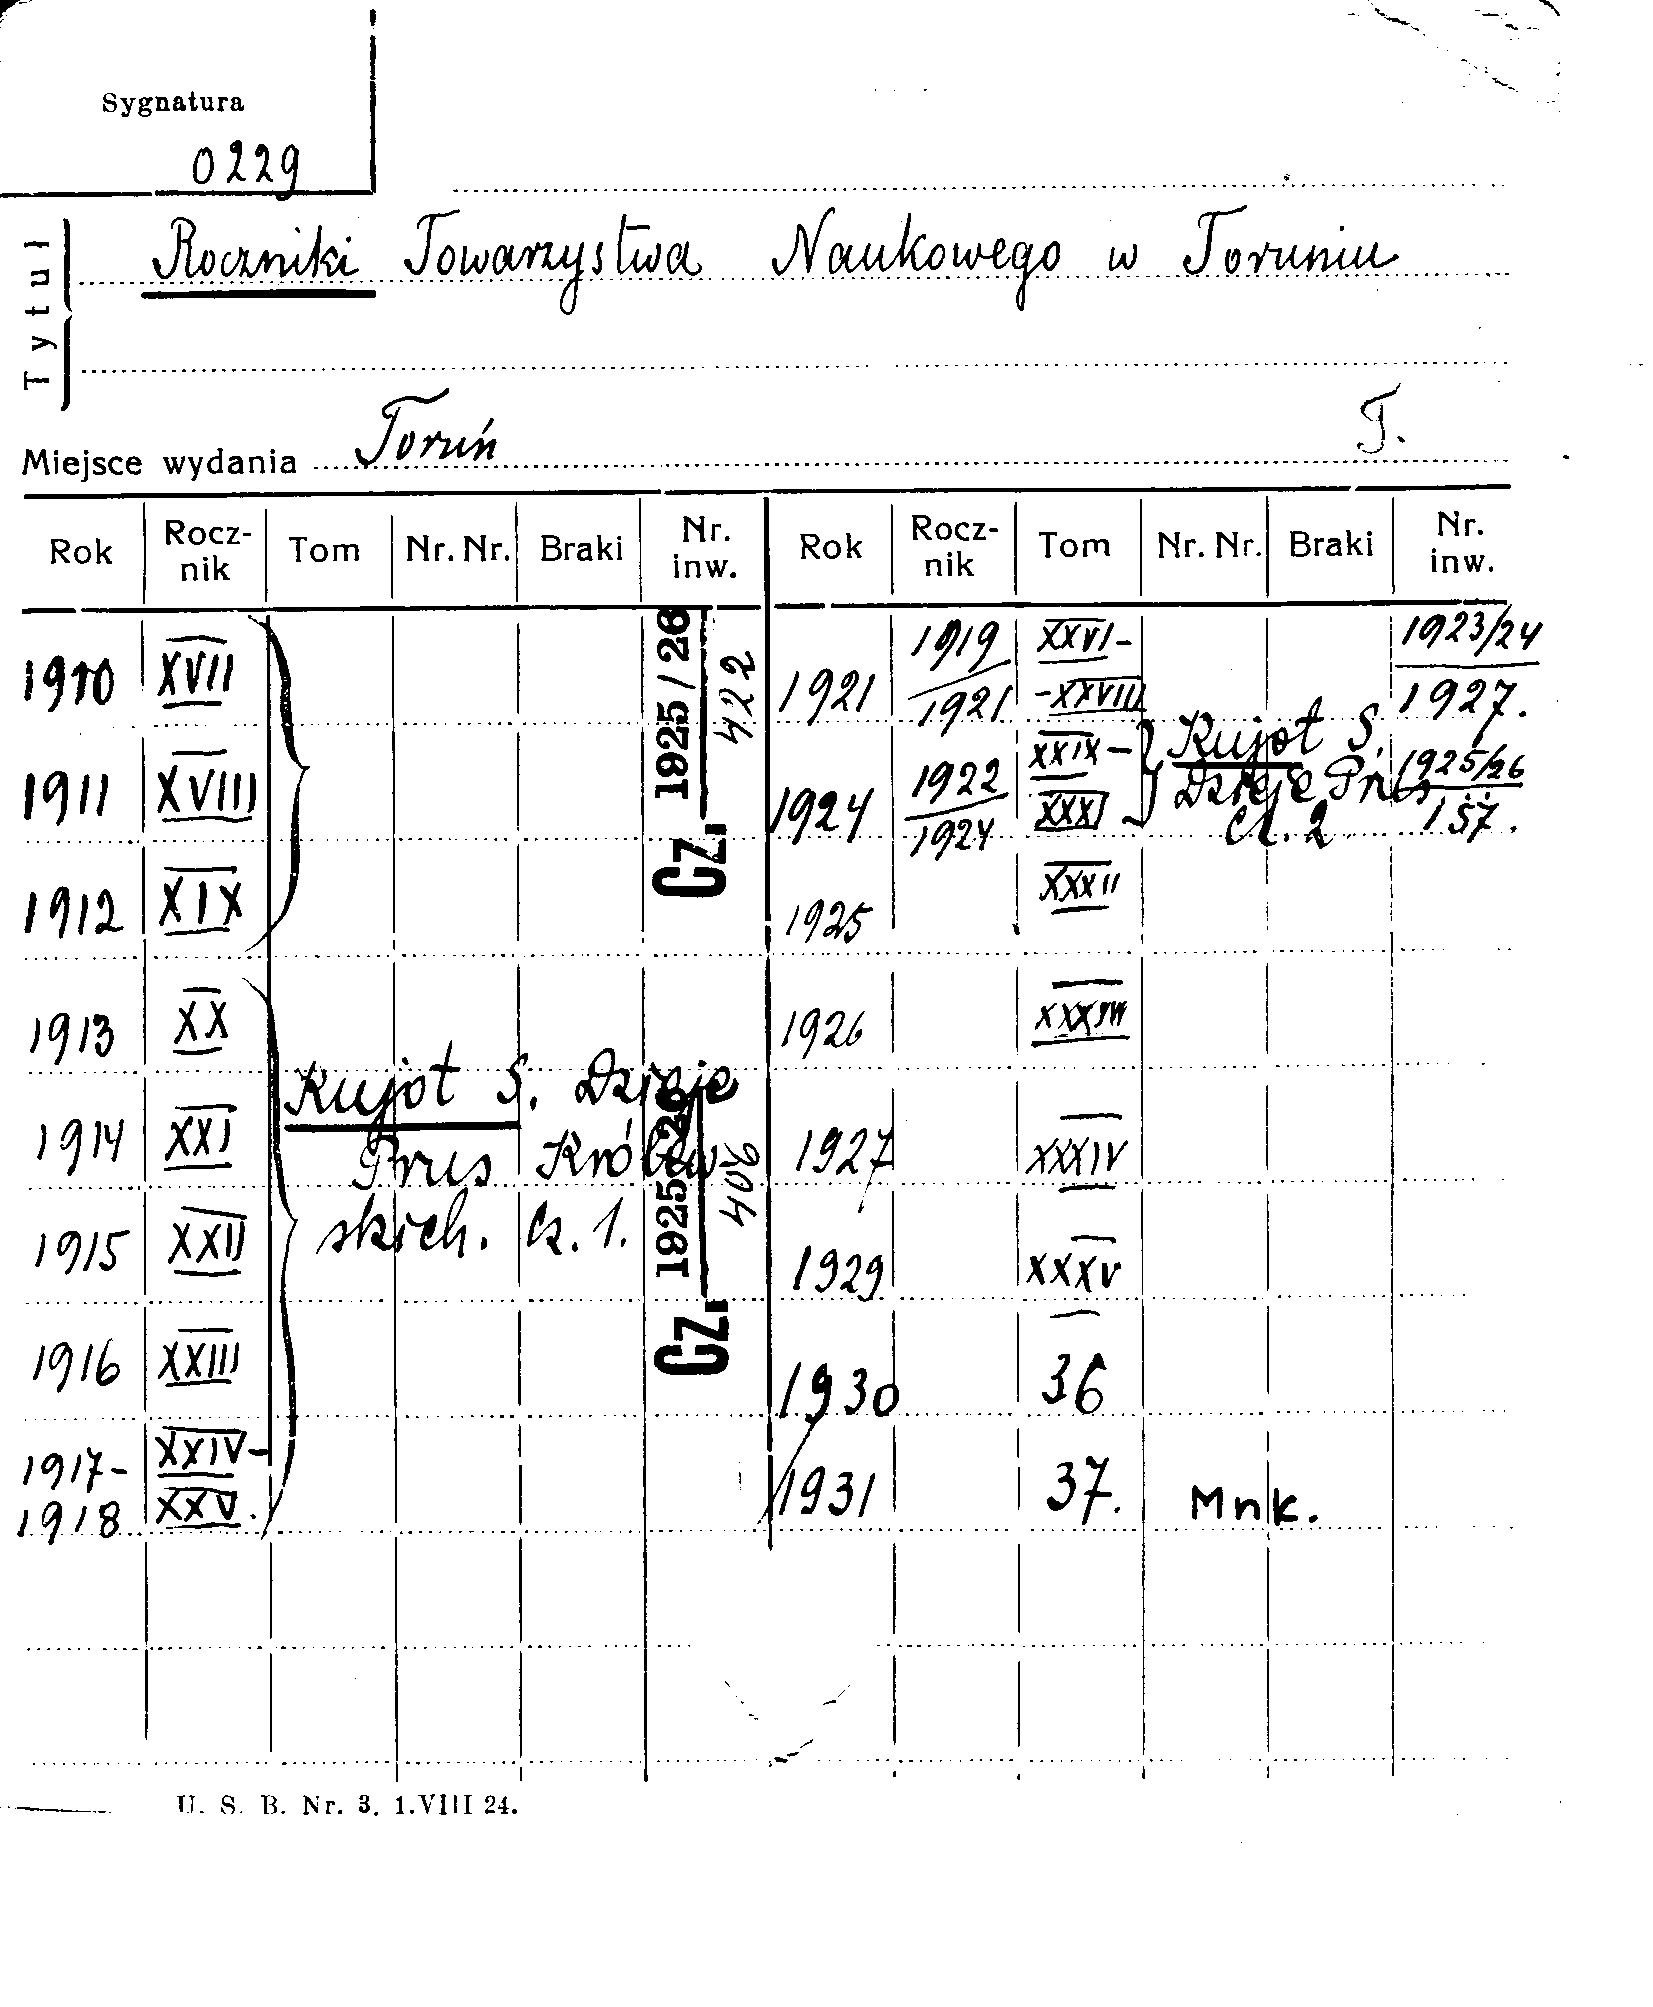 Sygnatura
0229
Tytuł
Roczniki Towarzystwa Naukowego w Toruniu
Miejsce wydania Toruń T.
Rok Rocz- Tom Nr. Nr. Braki Nr. Rok Rocz- Tom Nr. Nr. Braki Nr.
nik inw. nik inw.
1910 XVII Cz. 1925/26 422 1921 1919/1921 XXVI- -XXVIII 1923/24 1927.
1911 XVIII 1924 1922/1924 XXIX- XXXI Kujot S. Dzieje Prus cz. 2 1925/26 157.
1912 XIX 1925 XXXII
1913 XX 1926 XXXIII
1914 XXI Kujot S. Dzieje Cz. 1925/26 406 1927 XXXIV
Prus Królew
1915 XXII skich. Cz. 1. 1929 XXXV
1916 XXIII 1930 36
1917- XXIV-
1918 XXV. 1931 37. Mnk.
U. S. B. Nr. 3. 1.VIII 24.